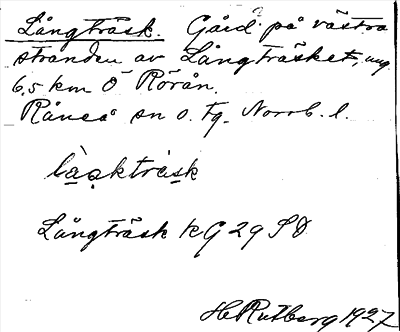 Långträsk. Gård på västra
stranden av Långträsket, ung.
6,5 km Ö Rörån.
Råneå sn o. tg. Norrb. l.
Långträsk kG 29 SO
H Rutberg 1927